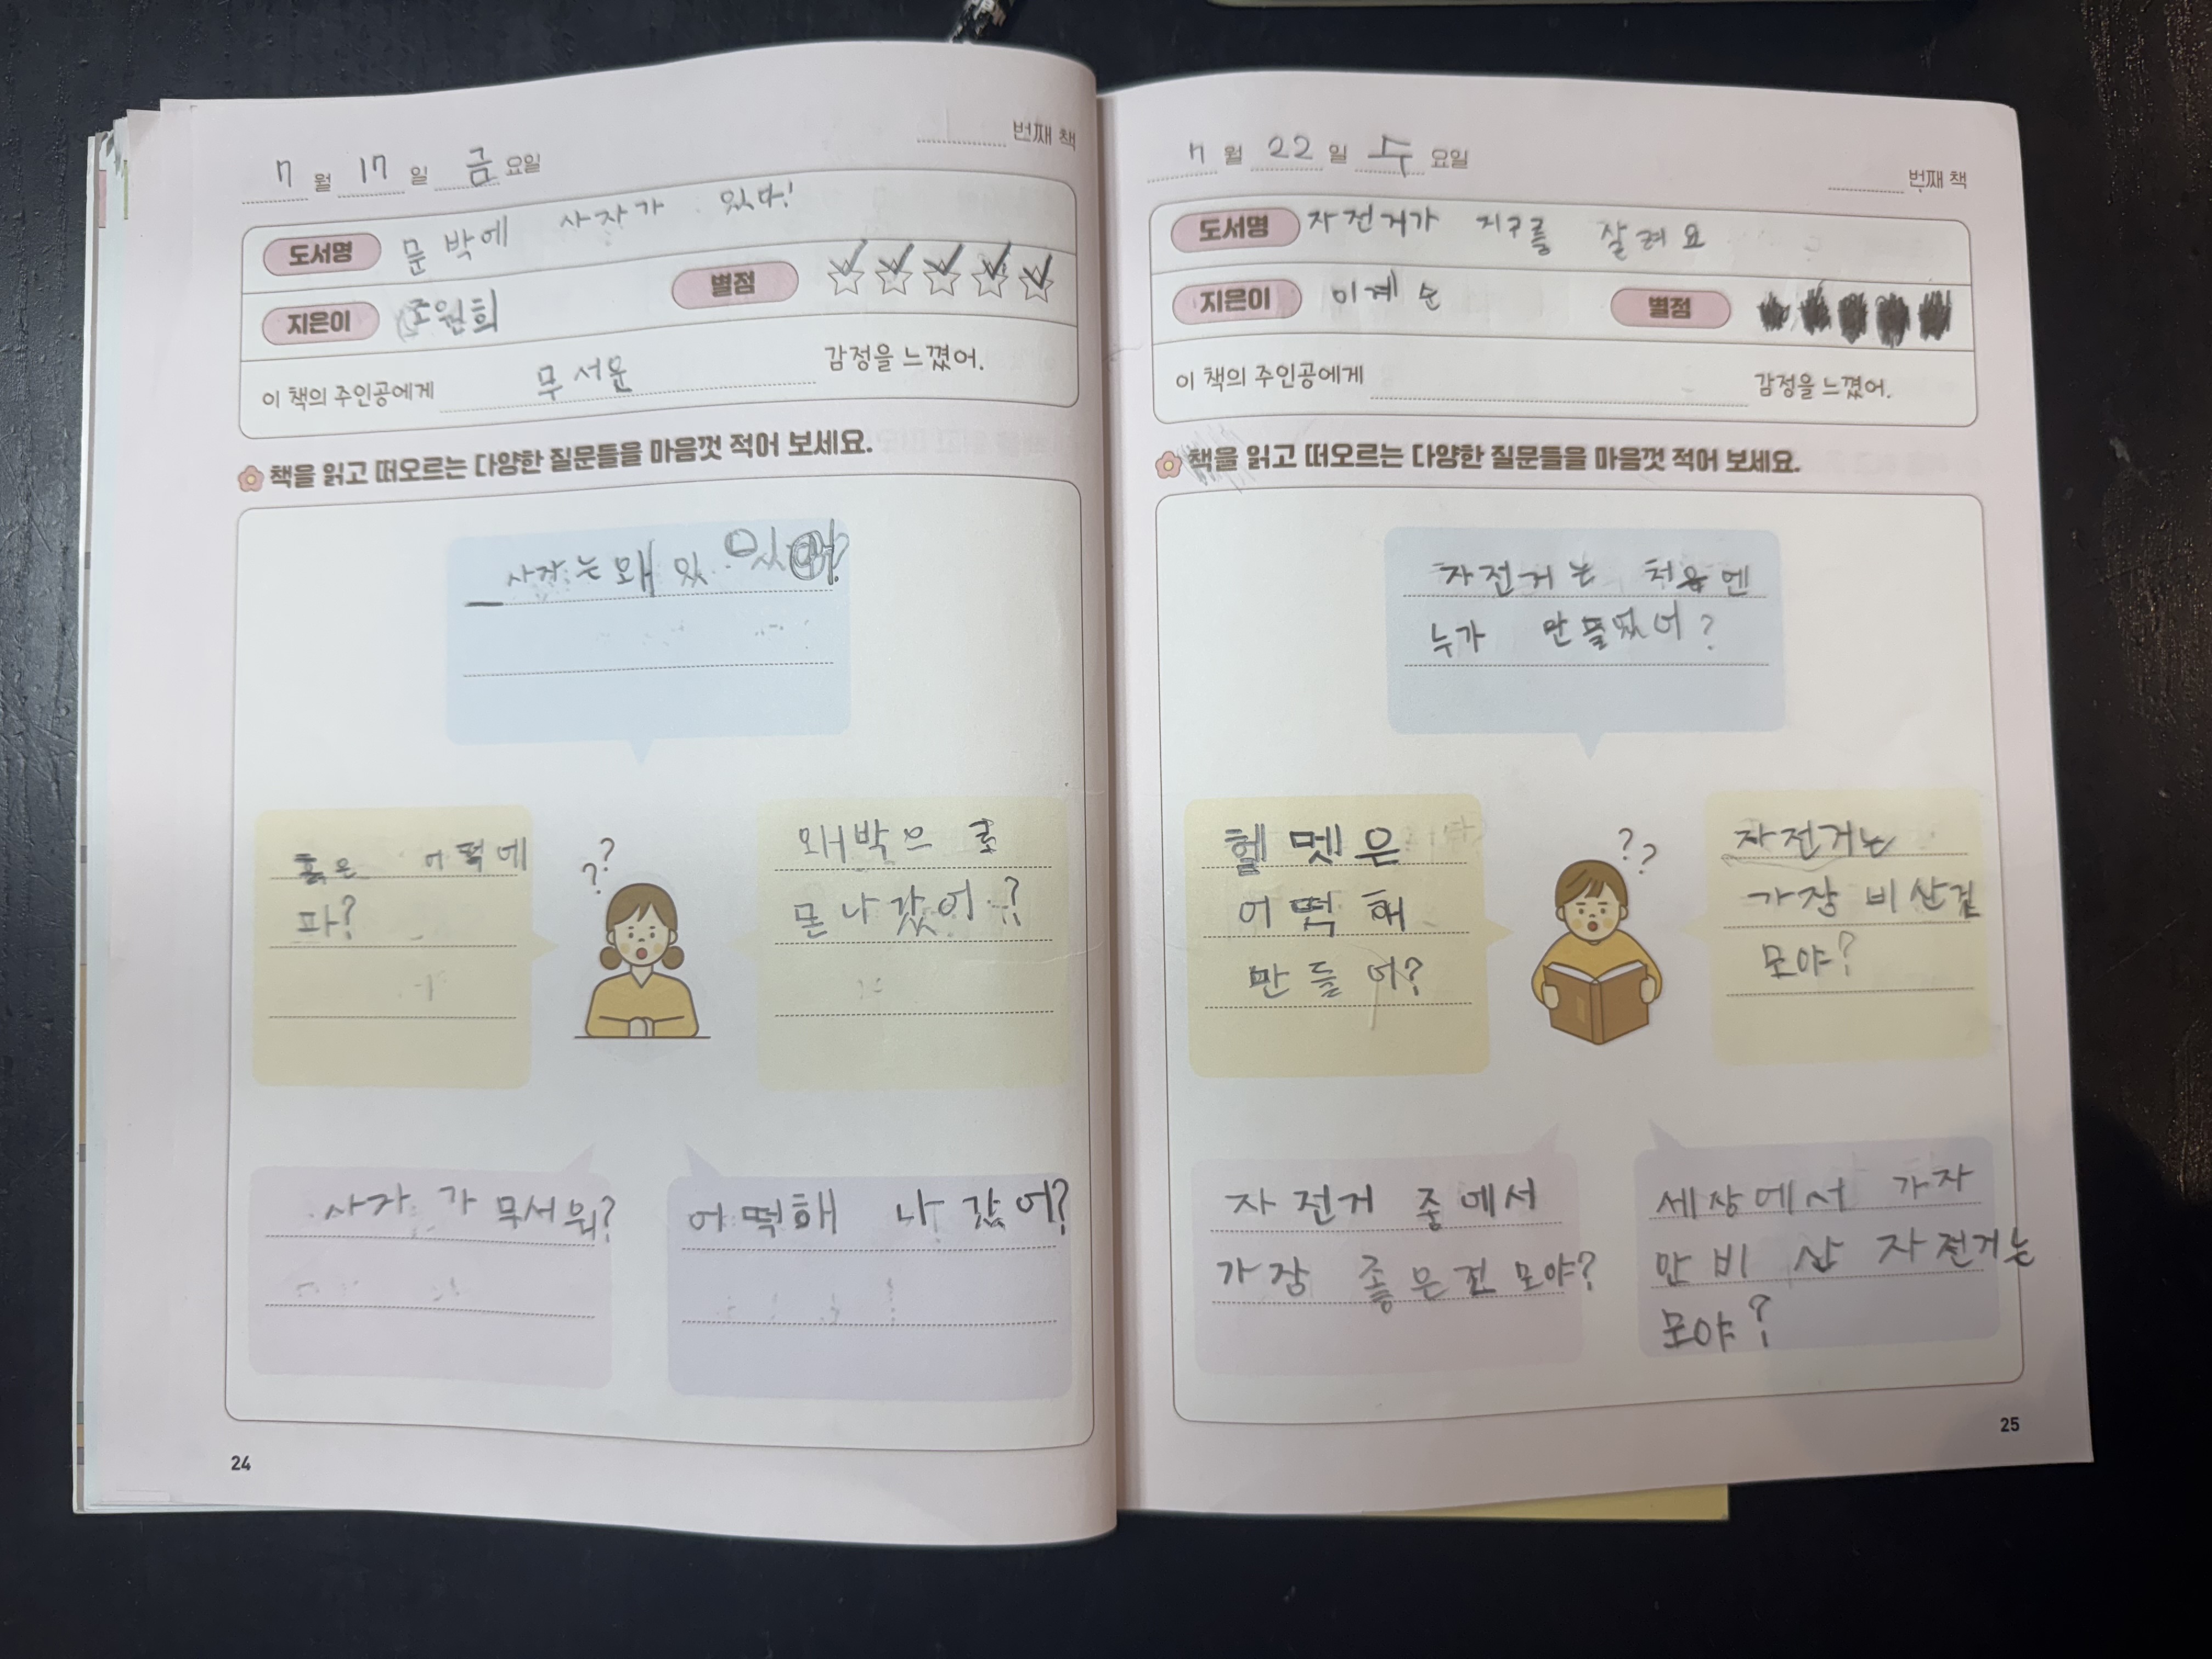 번째 책
7 월 17 일 금 요일
도서명 문 박에 사자가 있다!
지은이 조원희 별점
이 책의 주인공에게 무서운 감정을 느꼈어.
책을 읽고 떠오르는 다양한 질문들을 마음껏 적어 보세요.
사자는 왜 있 있어?
흙은 어떡에
파?
??
왜박으로
몬나갔어?
사자가 무서워?
어떡해 나갔어?
24
7 월 22 일 수 요일
번째 책
도서명 자전거가 지구를 살려요
지은이 이계순 별점
이 책의 주인공에게 감정을 느꼈어.
책을 읽고 떠오르는 다양한 질문들을 마음껏 적어 보세요.
자전거는 처음엔
누가 만들었어?
헬멧은
어떡해
만들어?
??
자전거는
가장 비산겄
모야?
자전거 중에서
가장 좋은건 모야?
세상에서 가자
안비산 자전거는
모야?
25